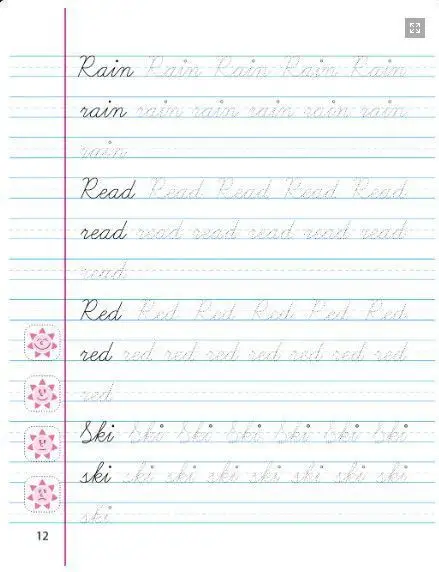 Rain Rain Rain Rain Rain
rain rain rain rain rain rain
rain
Read Read Read Read Read
read read read read read read
read
Red Red Red Red Red Red
red red red red red red red red
red
Ski Ski Ski Ski Ski Ski Ski
ski ski ski ski ski ski ski ski
ski
12